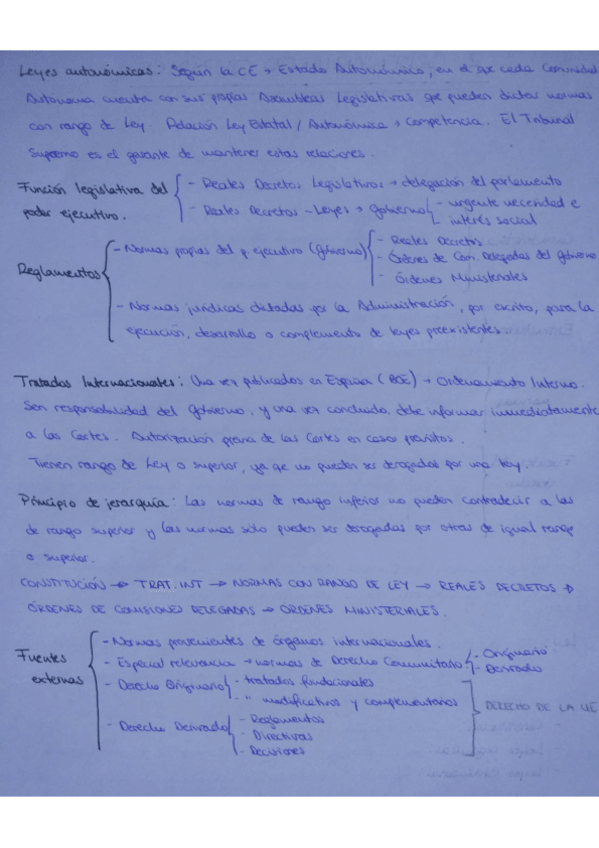 Leyes autonómicas: Según la CE → Estado Autonómico, en el que cada Comunidad
Autónoma cuenta con sus propias Asambleas Legislativas que pueden dictar normas
con rango de Ley. Relación Ley Estatal / Autonómica → Competencia. El Tribunal
Supremo es el garante de mantener estas relaciones.
Función legislativa del poder ejecutivo.
- Reales Decretos Legislativos → delegación del parlamento
- Reales Decretos - Leyes → Gobierno
- urgente necesidad e
interés social
Reglamentos
- Normas propias del p. ejecutivo (Gobierno)
- Reales Decretos
- Órdenes de Com. Delegadas del gobierno
- Órdenes Ministeriales
- Normas jurídicas dictadas por la Administración, por escrito, para la
ejecución, desarrollo o complemento de leyes preexistentes
Tratados Internacionales: Una vez publicados en España (BOE) → Ordenamiento Interno.
Son responsabilidad del Gobierno, y una vez concluido, debe informar inmediatamente
a las Cortes. Autorización previa de las Cortes en casos previstos.
Tienen rango de Ley o superior, ya qe no pueden ser derogados por una ley.
Principio de jerarquía: Las normas de rango inferior no pueden contradecir a las
de rango superior y las normas sólo pueden ser derogadas por otras de igual rango
o superior.
CONSTITUCIÓN → TRAT. INT → NORMAS CON RANGO DE LEY → REALES DECRETOS →
ÓRDENES DE COMISIONES DELEGADAS → ÓRDENES MINISTERIALES.
Fuentes externas
- Normas provenientes de órganos internacionales.
- Especial relevancia → normas de Derecho Comunitario
- Originario
- Derivado
- Derecho Originario
- tratados fundacionales
- " modificativos y complementarios
- Derecho Derivado
- Reglamentos
- Directivas
- Decisiones
DERECHO DE LA UE